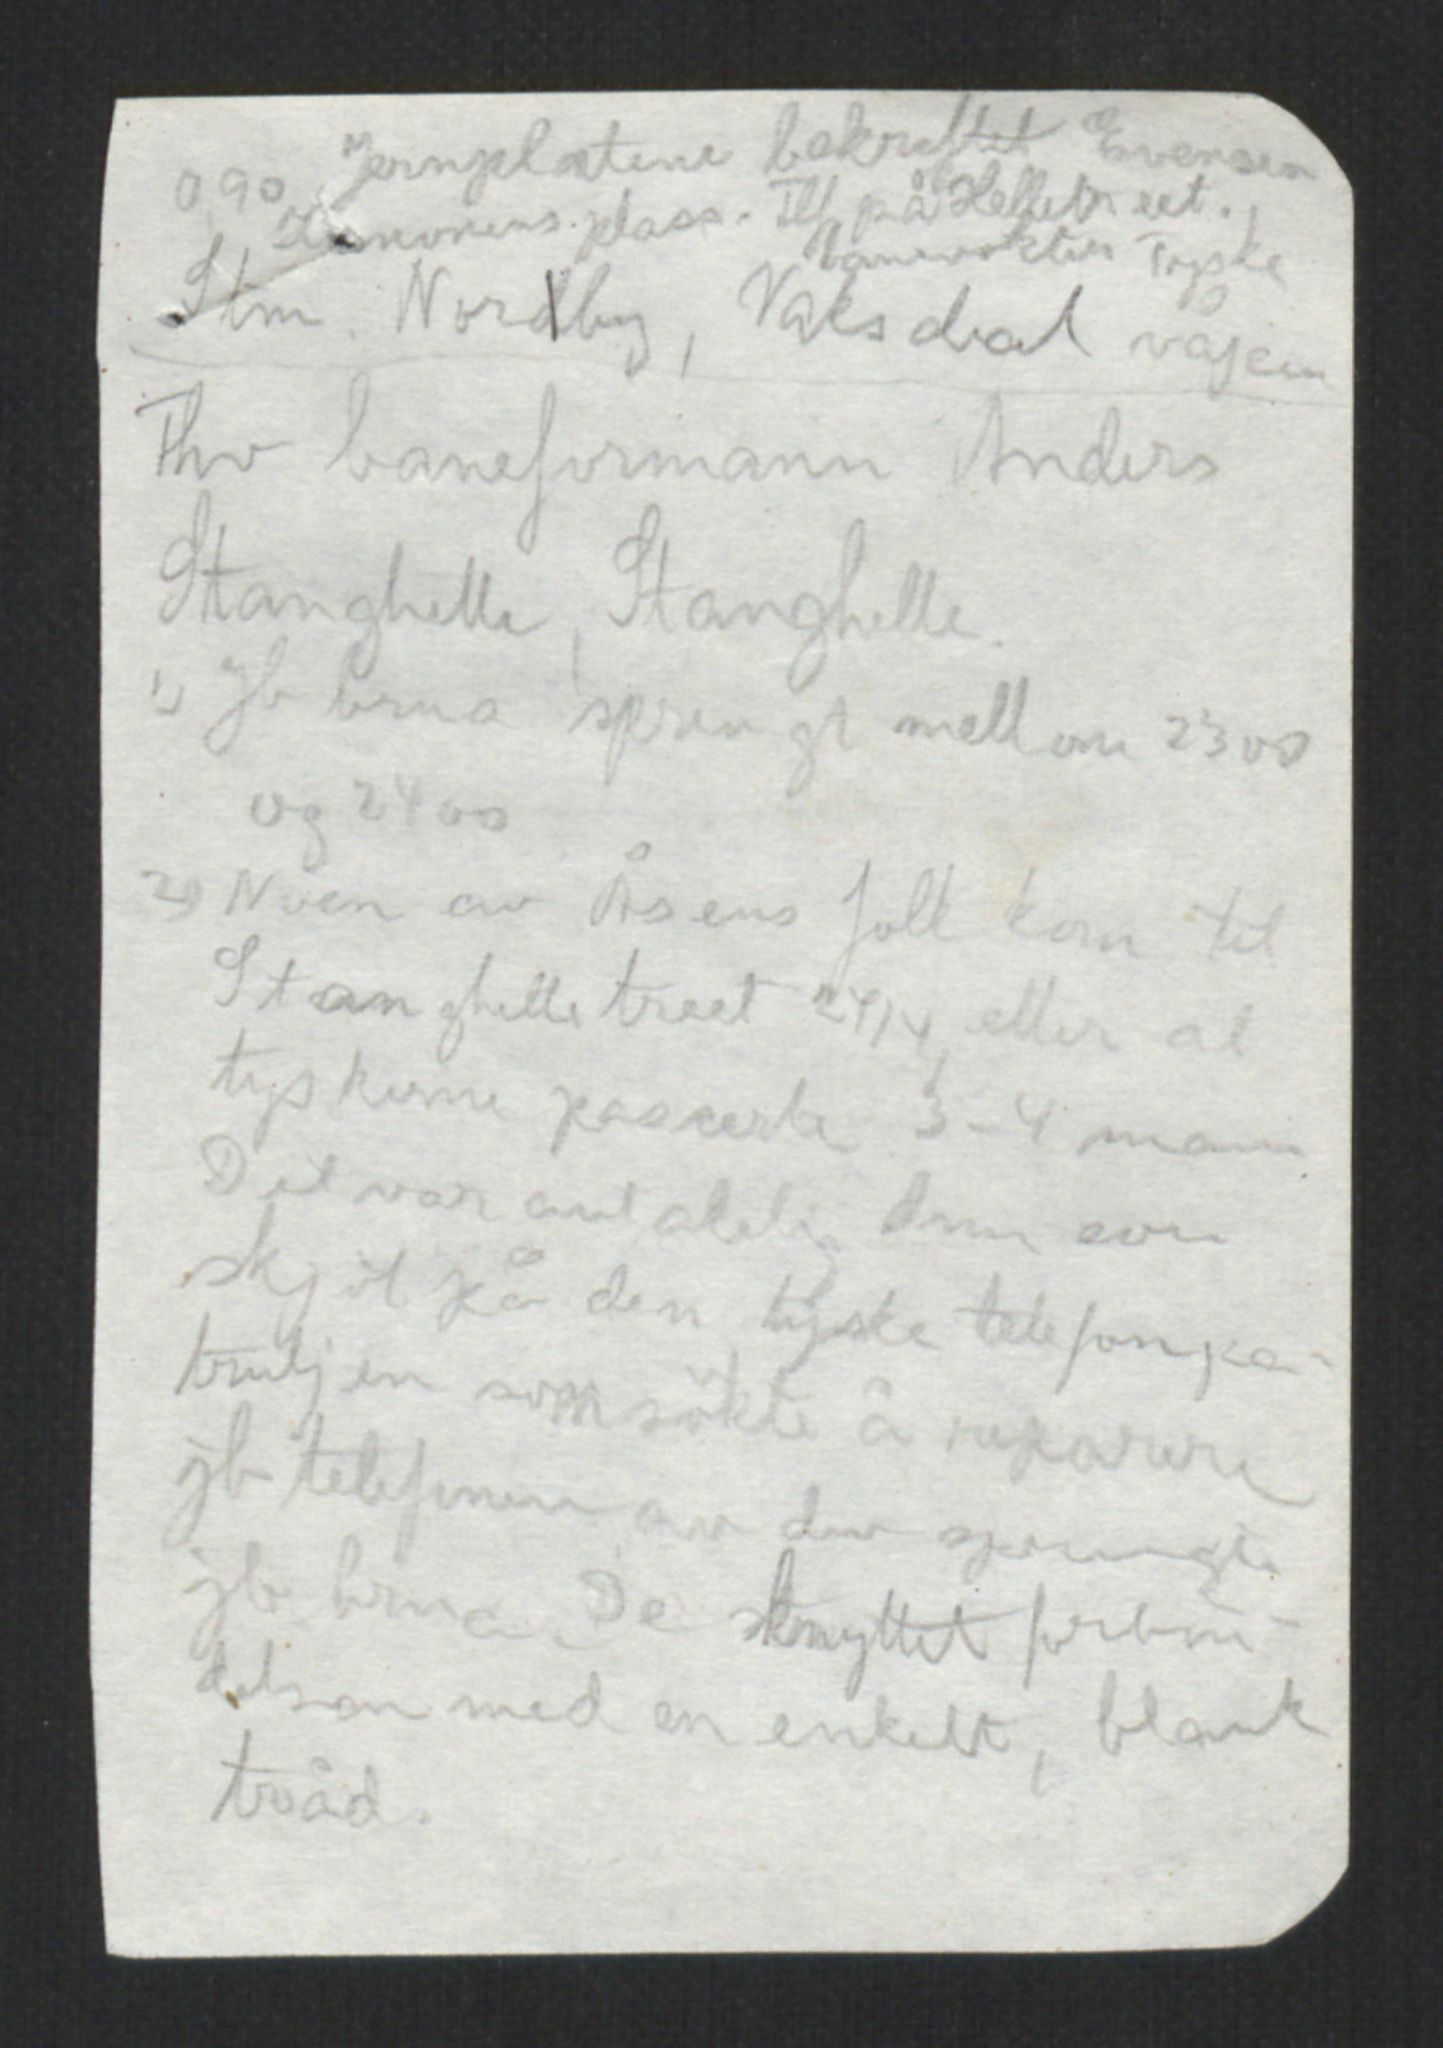 0,90 Jernplatene bekreftet Evensen
Kanonens plass. Ill på Helletreet.
banevokter Tyske
Stm. Nordby, Vaksdal våpen
Thv baneformann Anders
Stanghelle, Stanghelle.
1) Jb brua sprengt mellom 2300
og 2400
2) Noen av Åsens folk kom til
Stanghelletreet 24/4, etter at
tyskerne passerte 3-4 mann
Det var antakelig dem som
skjöt på den tyske telefonpa-
truljen som sökte å reparere
jb telefonen av den sprengte
jb brua. De knyttet forbin-
delsen med en enkelt, blank
tråd.